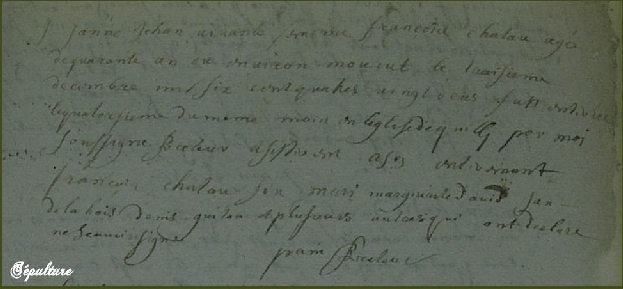 Janne Jehan vivante femme francois chalau agé
de quarante an ou environ mourut le traisieme
decembre mil six cent quatres vingt et fut enterree
le quatorsieme du meme mois en leglise de quilly par moi
soussigne Recteur asistoient a son enterrement
francois chalau son mari marguerite david Jan
de la bois denis guiton et plusieurs autres qui ont declare
ne scavoir signe
Recteur
Sépulture